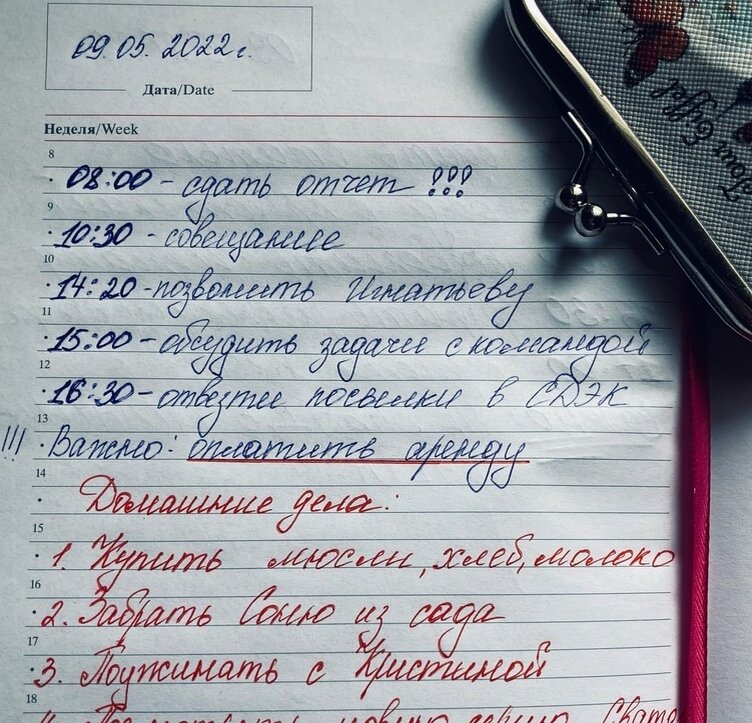 09.05.2022г.
Дата/Date
Неделя/Week
8
· 08:00 - сдать отчет !!!
9
· 10:30 - совещание
10
· 14:20 - позвонить Игнатьеву
11
· 15:00 - обсудить задачи с командой
12
· 16:30 - отвезти посылки в СДЭК
13
!!! · Важно: оплатить аренду
14
· Домашние дела:
15
· 1. Купить мюсли, хлеб, молоко
16
· 2. Забрать Соню из сада
17
· 3. Поужинать с Кристиной
18
4. Посмотреть новую серию Сваты
Tour Eiffel